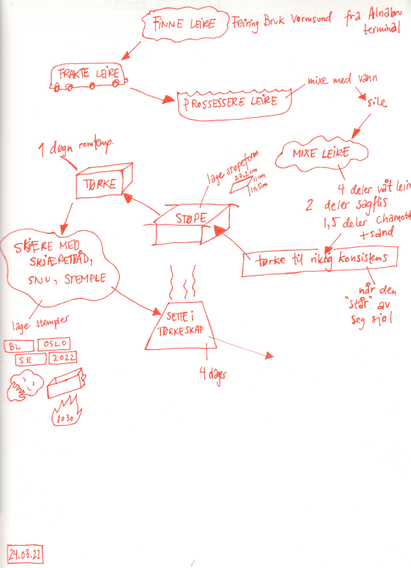 FINNE LEIRE
Feiring Bruk Vormsund fra Alnabru
terminal
FRAKTE LEIRE
PROSSESSERE LEIRE
mixe med vann
sile
MIXE LEIRE
4 deler våt leire
2 deler sagflis
1,5 deler Chamott
+ sand
tørke til riktig konsistens
når den
"står" av
seg sjøl
lage støpeform
STØPE
1 døgn romtemp.
TØRKE
SKJÆRE MED
SKJÆRETRÅD,
SNU, STEMPLE
lage stempler
BL OSLO
SE 2022
1030
SETTE I
TØRKESKAP
4 dager
24.03.22